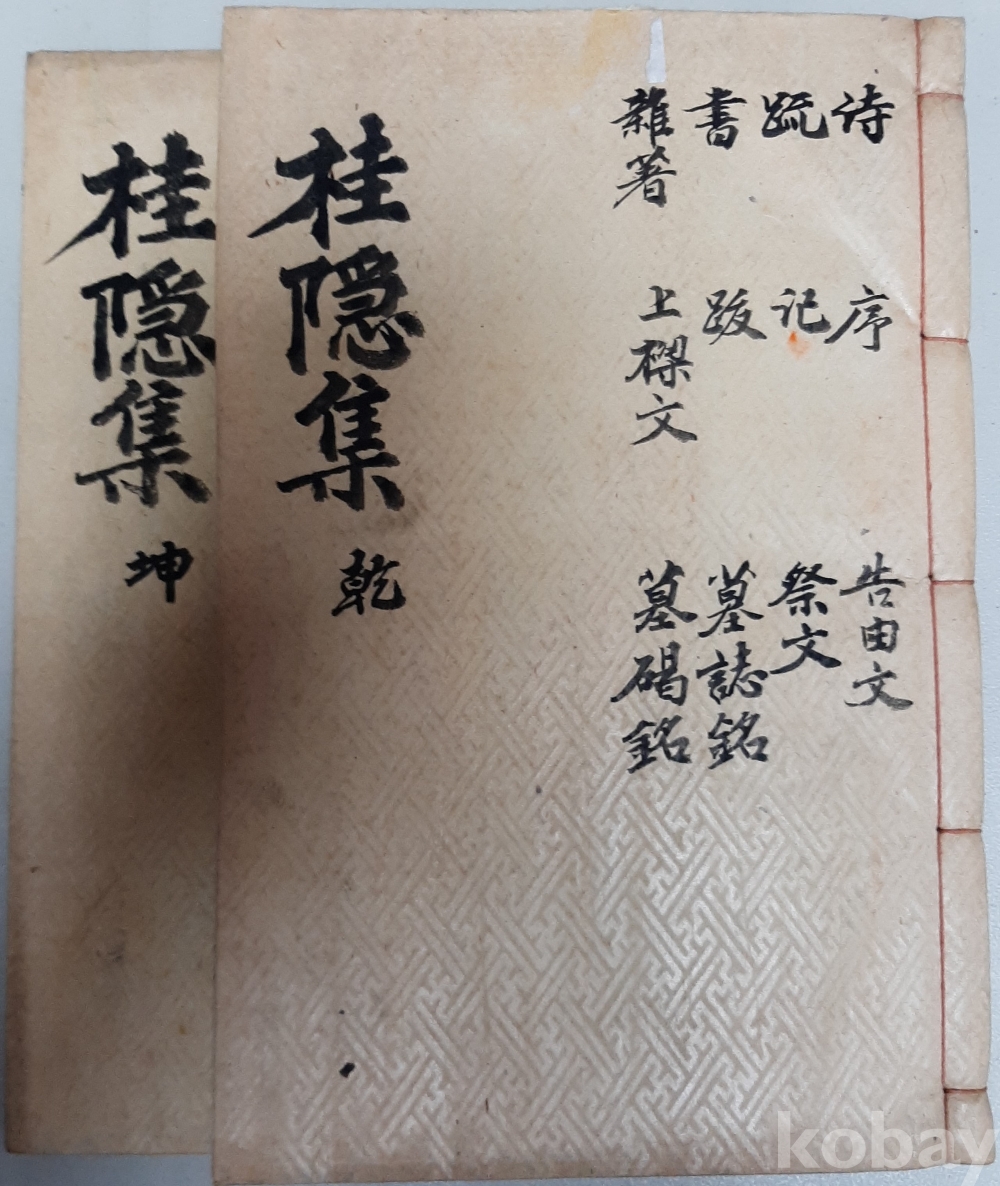 詩 序 告由文
疏 記 祭文
書 跋 墓誌銘
雜著 上樑文 墓碣銘
桂隱集 乾
桂隱集 坤
kobay